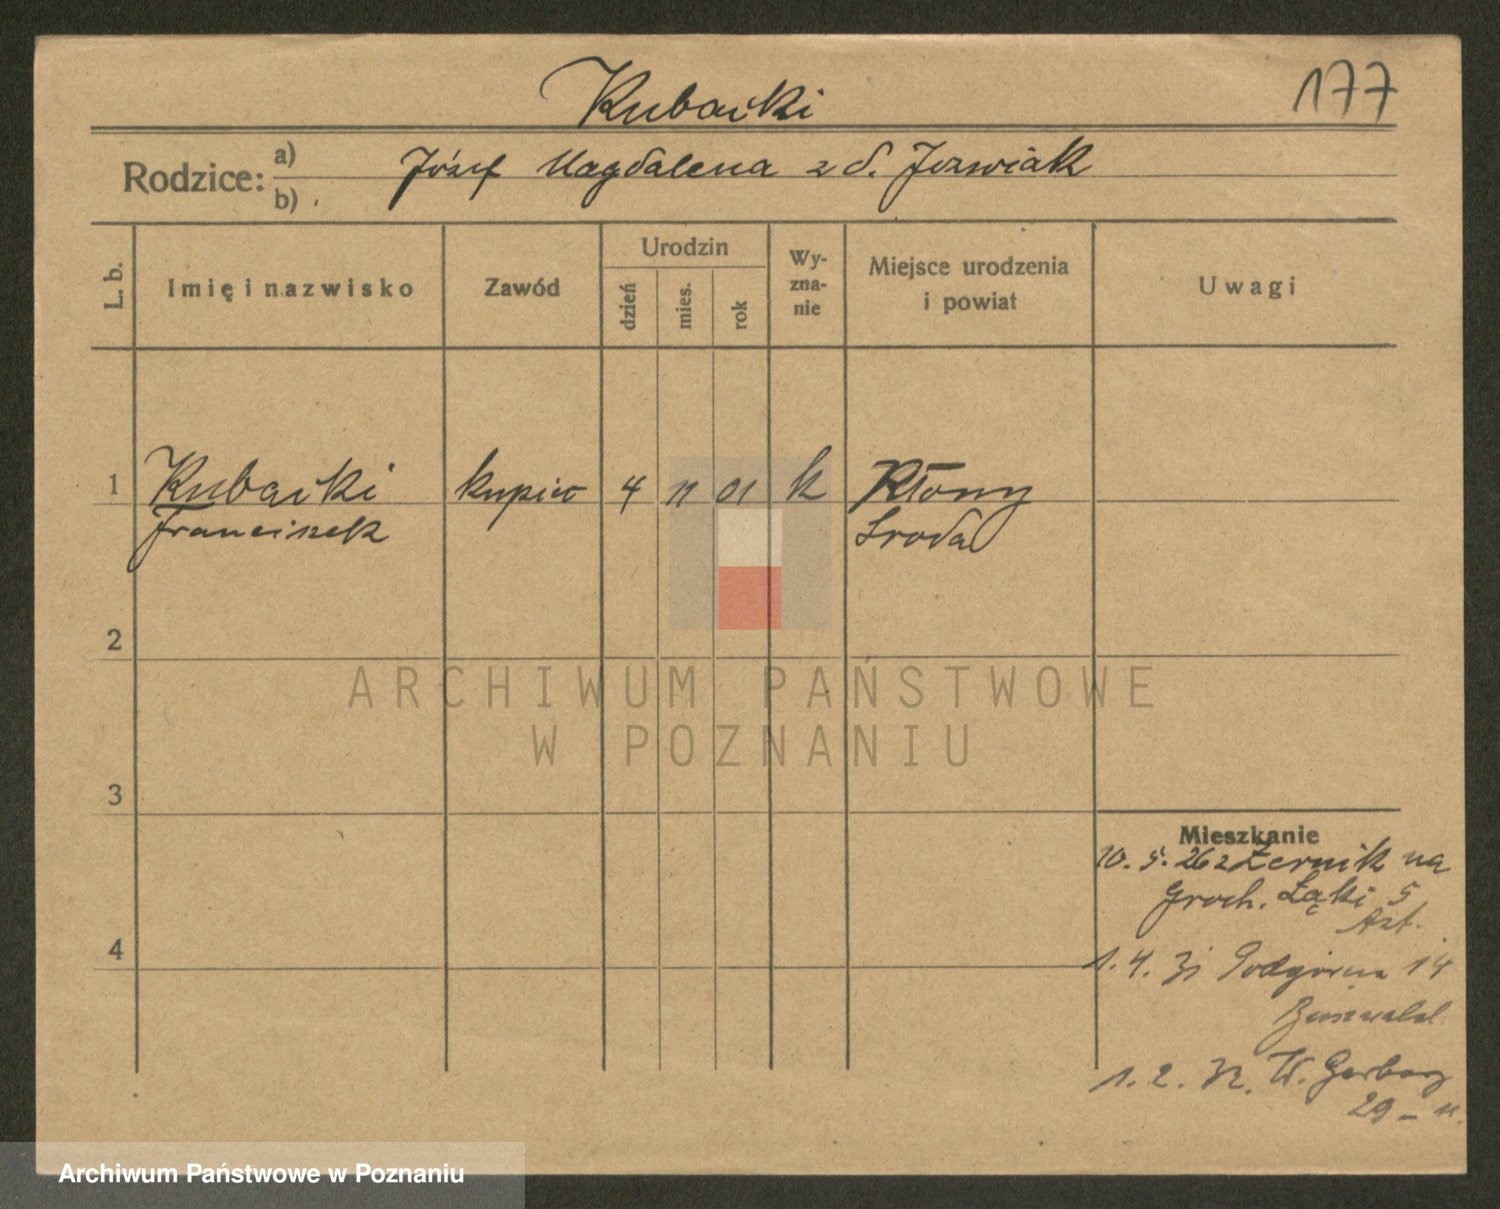 Kubacki
177
Rodzice: a) b)
Józef Magdalena z d. Jozwiak
L. b.
Imię i nazwisko
Zawód
Urodzin
dzień
mies.
rok
Wy-
zna-
nie
Miejsce urodzenia
i powiat
Uwagi
1 Kubacki kupiec 4 11 01 k Kłony
Franciszek Sroda
2
3
4
ARCHIWUM PAŃSTWOWE
W POZNANIU
Mieszkanie
10. 5. 26 z Żernik na
Groch. Łąki 5
1. 4. 31 Podgórna 14
1. 2. 32. W. Garbary
29 –
Archiwum Państwowe w Poznaniu